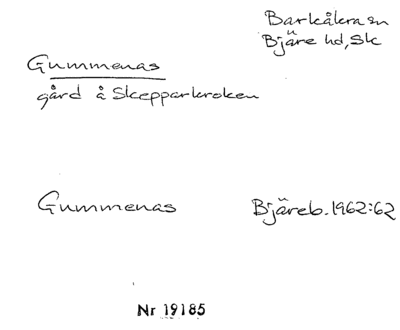 Barkåkra sn
Bjäre hd, Sk
Gummenas
gård å Skepparkroken
Gummenas
Bjäreb. 1962:62
Nr 19185